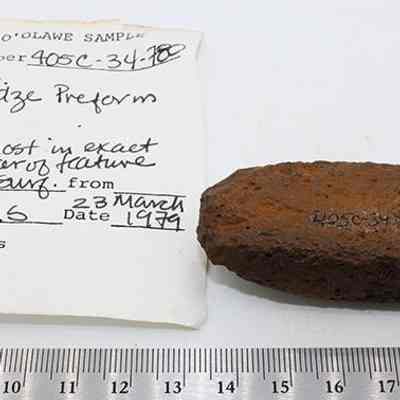 O'OLAWE SAMPLE
ber 405C-34-780
dze Preform
ost in exact
er of feature
Surf. from
S Date 23 March 1979
s
405C-34
10 11 12 13 14 15 16 17